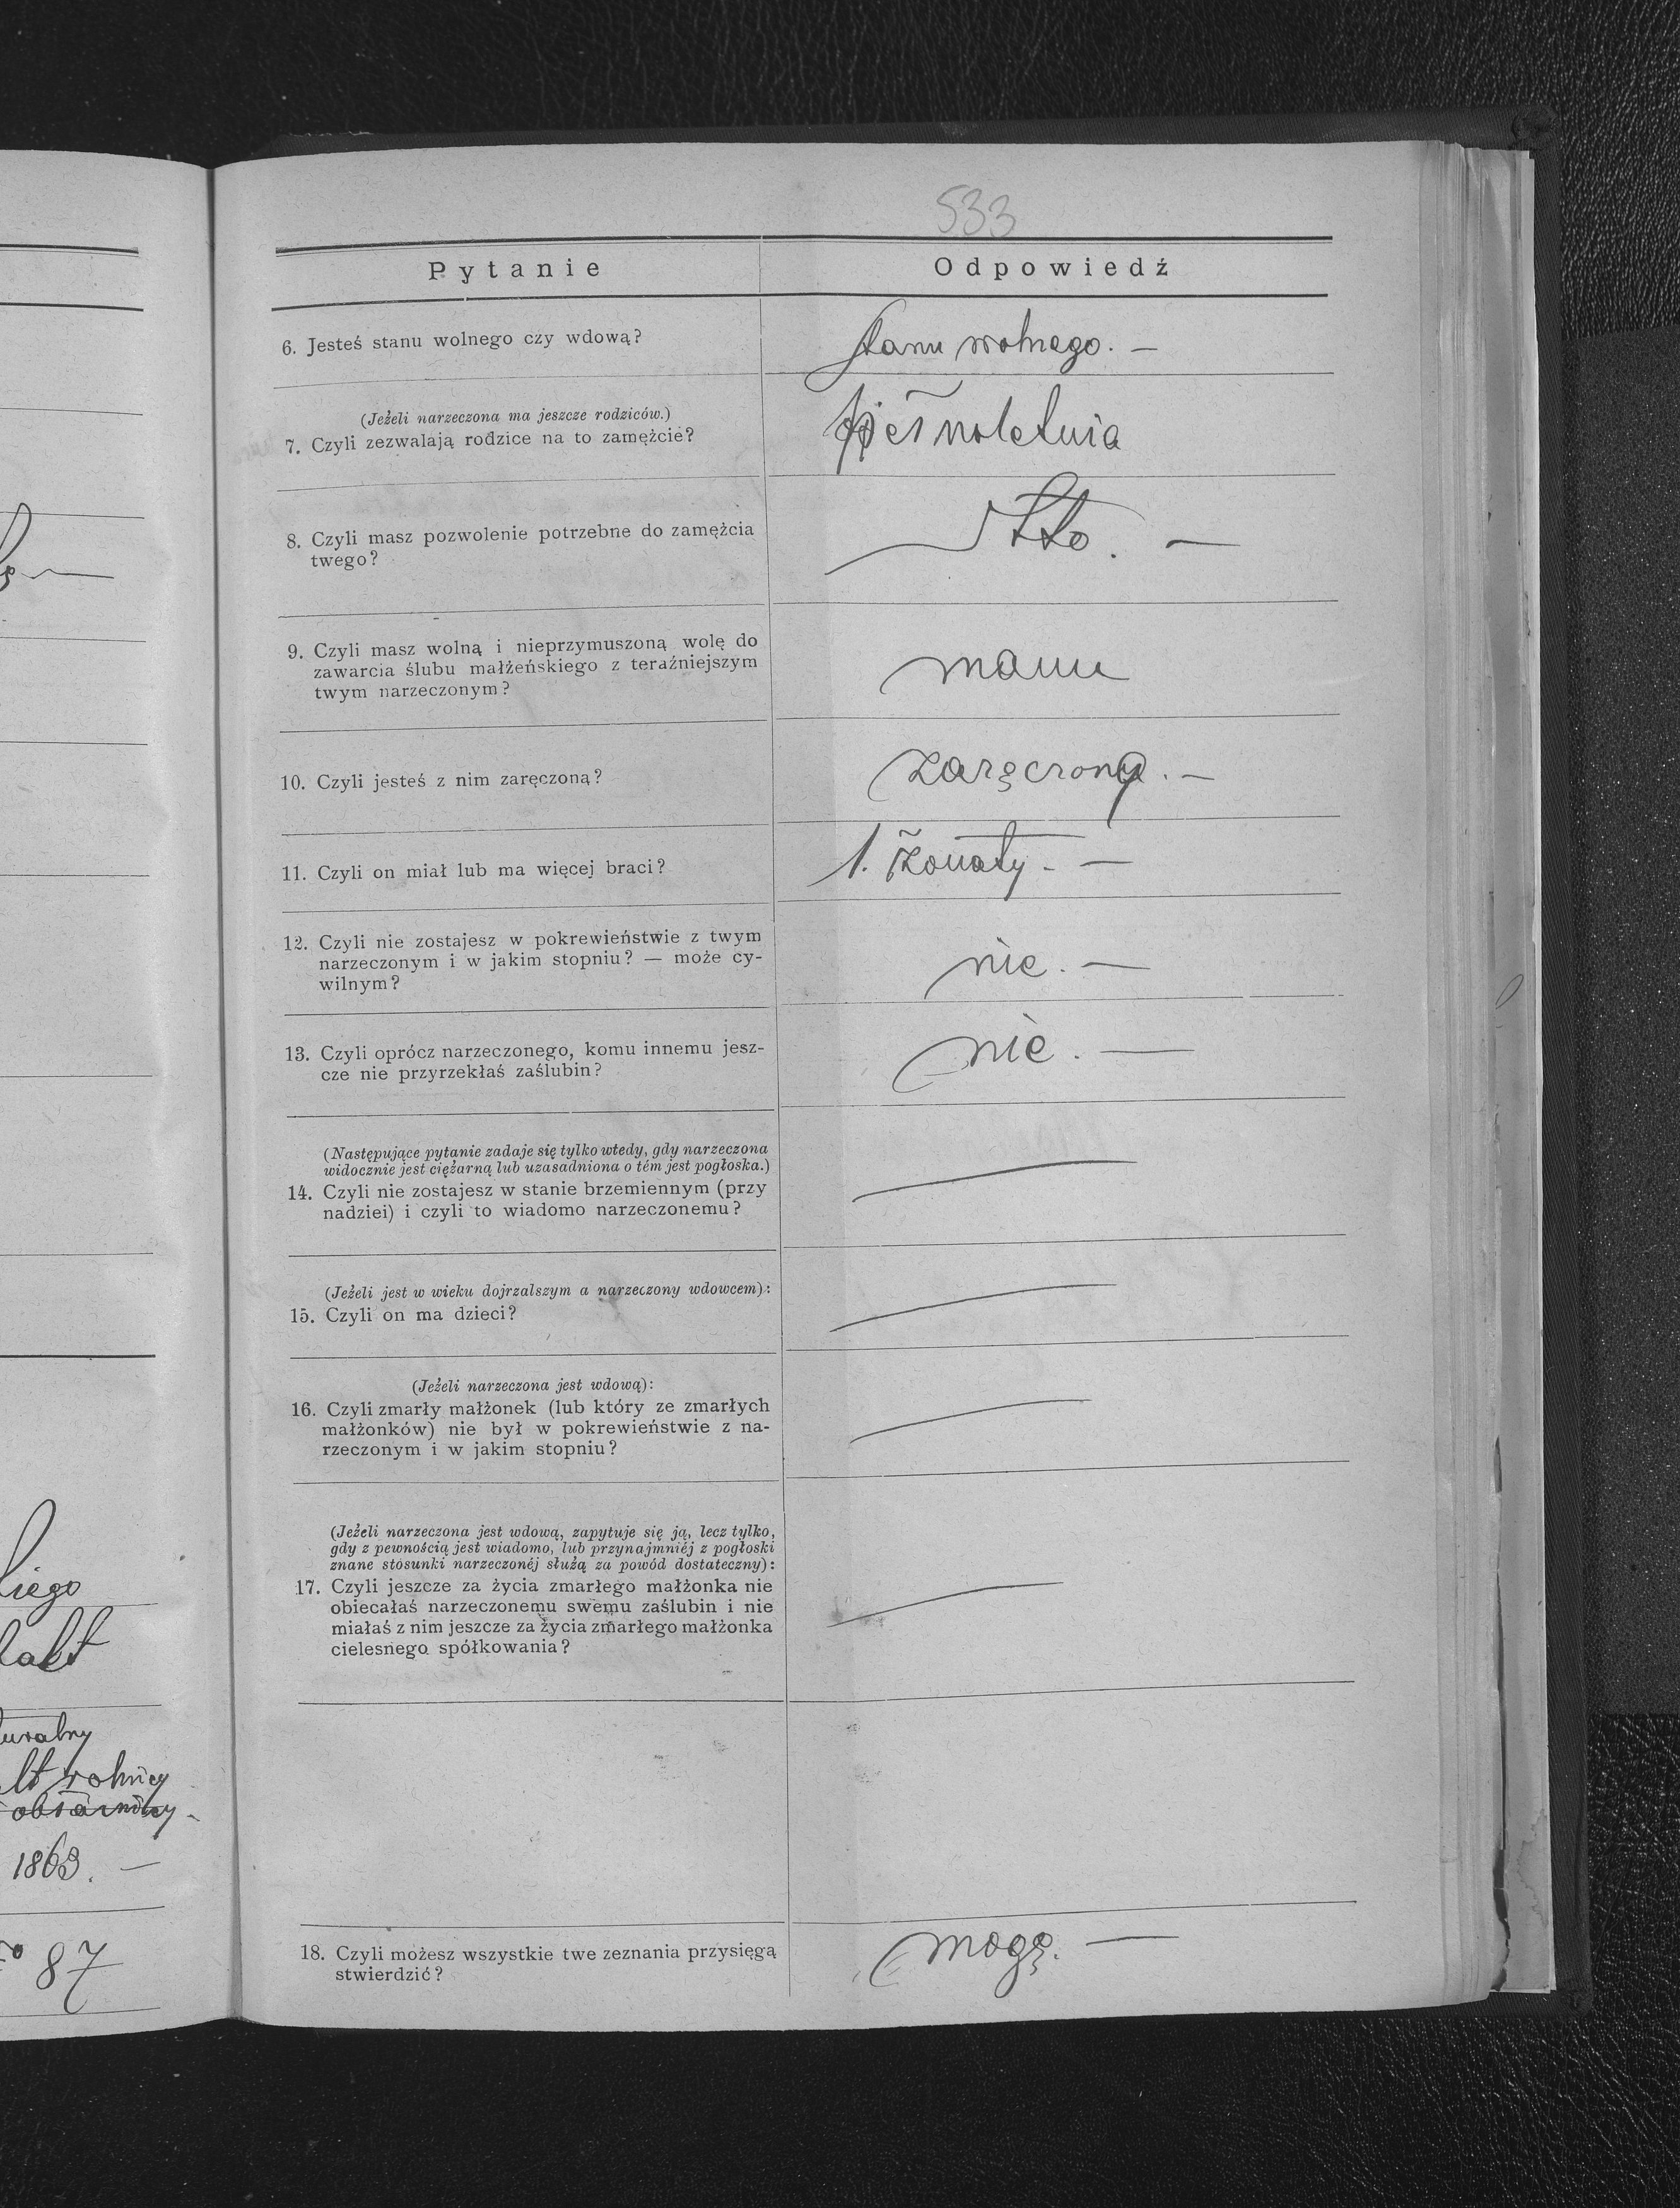 533
Pytanie
Odpowiedź
6. Jesteś stanu wolnego czy wdową?
stanu wolnego. —
(Jeżeli narzeczona ma jeszcze rodziców.)
7. Czyli zezwalają rodzice na to zamężcie?
8. Czyli masz pozwolenie potrzebne do zamężcia
twego?
9. Czyli masz wolną i nieprzymuszoną wolę do
zawarcia ślubu małżeńskiego z teraźniejszym
twym narzeczonym?
mam
10. Czyli jesteś z nim zaręczoną?
zaręczoną. —
11. Czyli on miał lub ma więcej braci?
1. żonaty. —
12. Czyli nie zostajesz w pokrewieństwie z twym
narzeczonym i w jakim stopniu? — może cy-
wilnym?
nie. —
13. Czyli oprócz narzeczonego, komu innemu jesz-
cze nie przyrzekłaś zaślubin?
nie. —
(Następujące pytanie zadaje się tylko wtedy, gdy narzeczona
widocznie jest ciężarną lub uzasadniona o tém jest pogłoska.)
14. Czyli nie zostajesz w stanie brzemiennym (przy
nadziei) i czyli to wiadomo narzeczonemu?
—
(Jeżeli jest w wieku dojrzalszym a narzeczony wdowcem):
15. Czyli on ma dzieci?
—
(Jeżeli narzeczona jest wdową):
16. Czyli zmarły małżonek (lub który ze zmarłych
małżonków) nie był w pokrewieństwie z na-
rzeczonym i w jakim stopniu?
—
(Jeżeli narzeczona jest wdową, zapytuje się ją, lecz tylko,
gdy z pewnością jest wiadomo, lub przynajmniéj z pogłoski
znane stosunki narzeczonéj służą za powód dostateczny):
17. Czyli jeszcze za życia zmarłego małżonka nie
obiecałaś narzeczonemu swemu zaślubin i nie
miałaś z nim jeszcze za życia zmarłego małżonka
cielesnego spółkowania?
—
18. Czyli możesz wszystkie twe zeznania przysięgą
stwierdzić?
mogę. —
1863. —
87